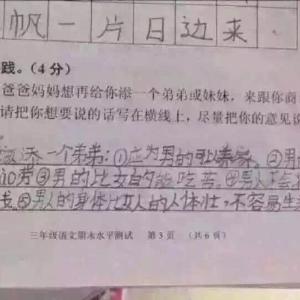 帆一片日边来
践。(4分)
爸爸妈妈想再给你添一个弟弟或妹妹,来跟你商
请把你想要说的话写在横线上,尽量把你的意见说
添一个弟弟:①应为男的可以养家。②男
③男的比女的能吃苦。④男人不会
⑤男人的身体比女人的人体壮,不容易生
三年级语文期末水平测试 第3页 (共6页)